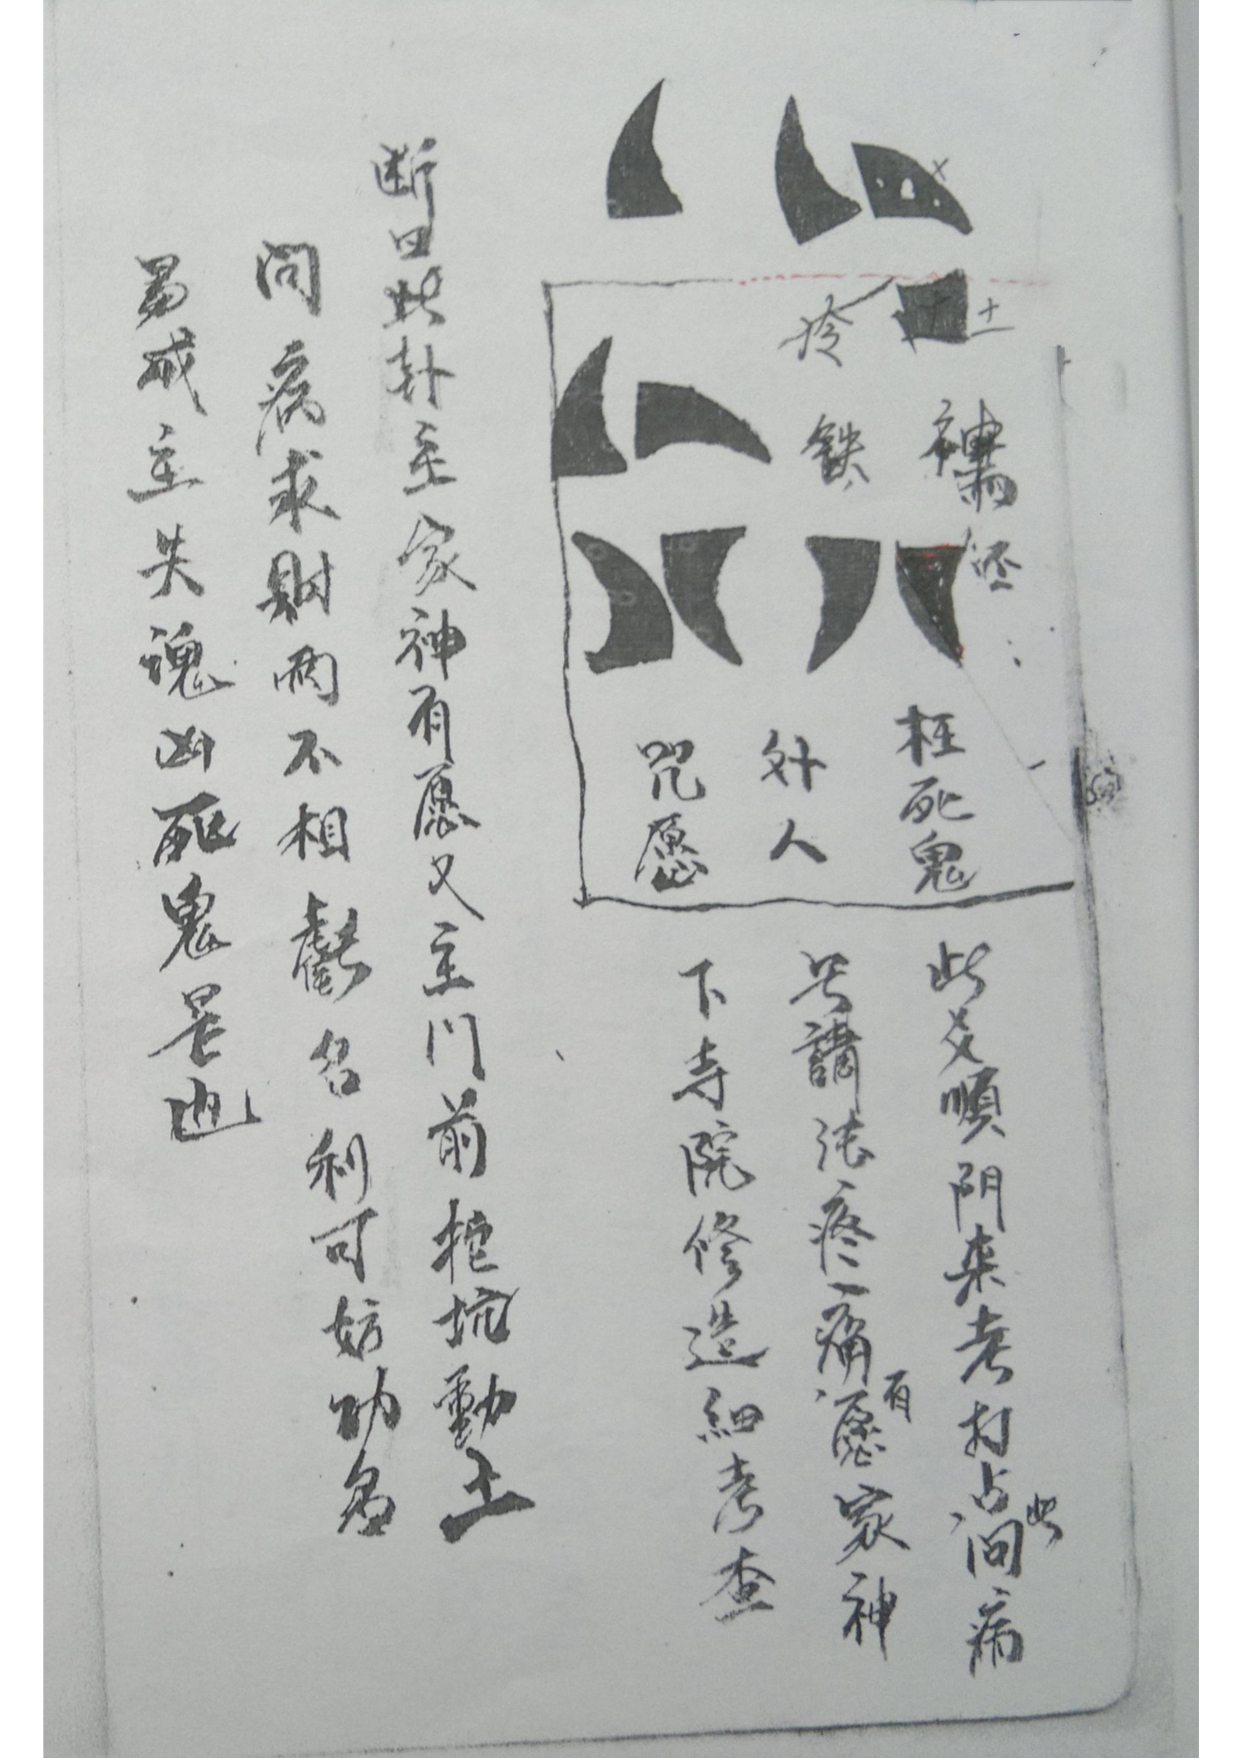 土
神
冷
铁
枉死鬼
外人
咒愿
此爻順阴来考打占此问病
另請法疼痛有愿家神
下寺院修造細考查
断曰此卦主家神有愿又主门前挖坑動土
问病求財两不相歡名利可妨功名
易成主失魂凶死鬼是也